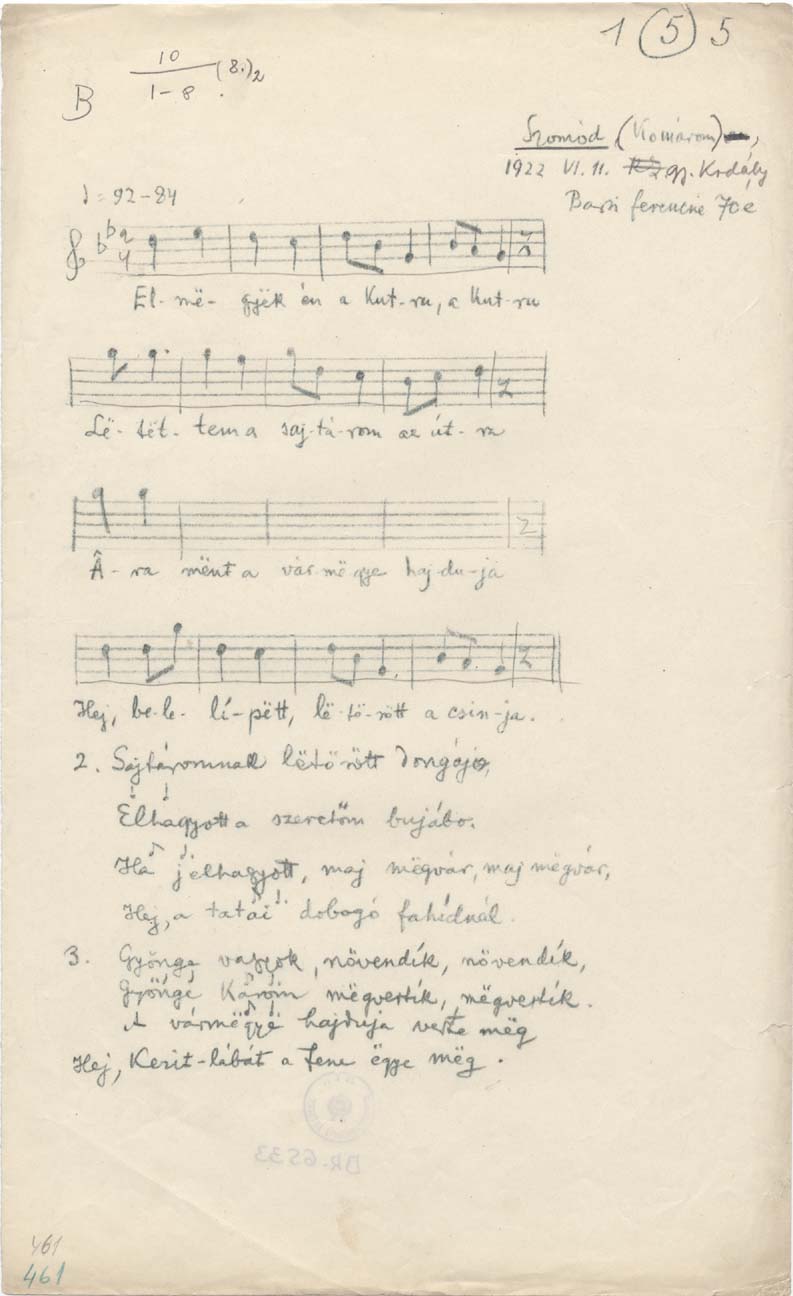 1 5 5
10
B (8.)2
1-8
Szomód (Komárom),
1922 VI. 11. gy. Király
Ferencné 70 é
♩ = 92-84
El- më- gyëk én a kut- ru, a kut- ru
Lë- tët- tem a saj- tá- rom az út- ra
Â- ra mënt a vár- më gye haj- du- ja
Hej, be- le- lí- pëtt, lë- tö- rött a csin- ja.
2. Sajtáromnak lëtörött dongája,
Elhagyott a szeretőm bujábo.
Ha jelhagyott, maj mëgvár, maj mëgvár,
Hej, a tatái dobogó fahídnál.
3. Gyönge vagyok, növendík, növendík,
Gyönge mëgvertík, mëgvertík.
A vármëgye hajduja verte mëg
Hej, Kezit-lábát a fene ëgye mëg.
BR-6533
461
461